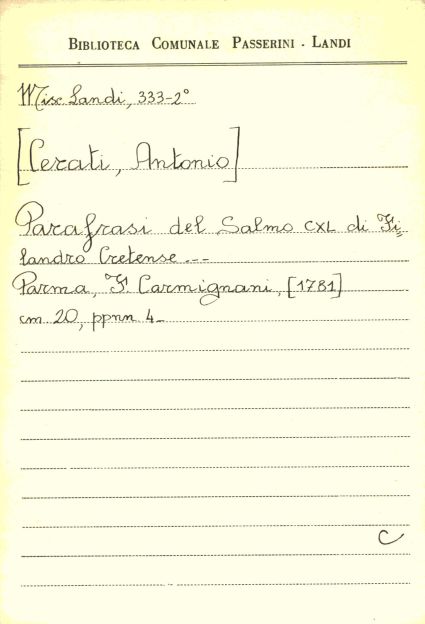 BIBLIOTECA COMUNALE PASSERINI - LANDI
Misc Landi, 333-2°
[Cerati, Antonio]
Parafrasi del Salmo CXL di Fi=
landro Cretense ---
Parma, F. Carmignani, [1781]
cm 20, ppnn 4_
C